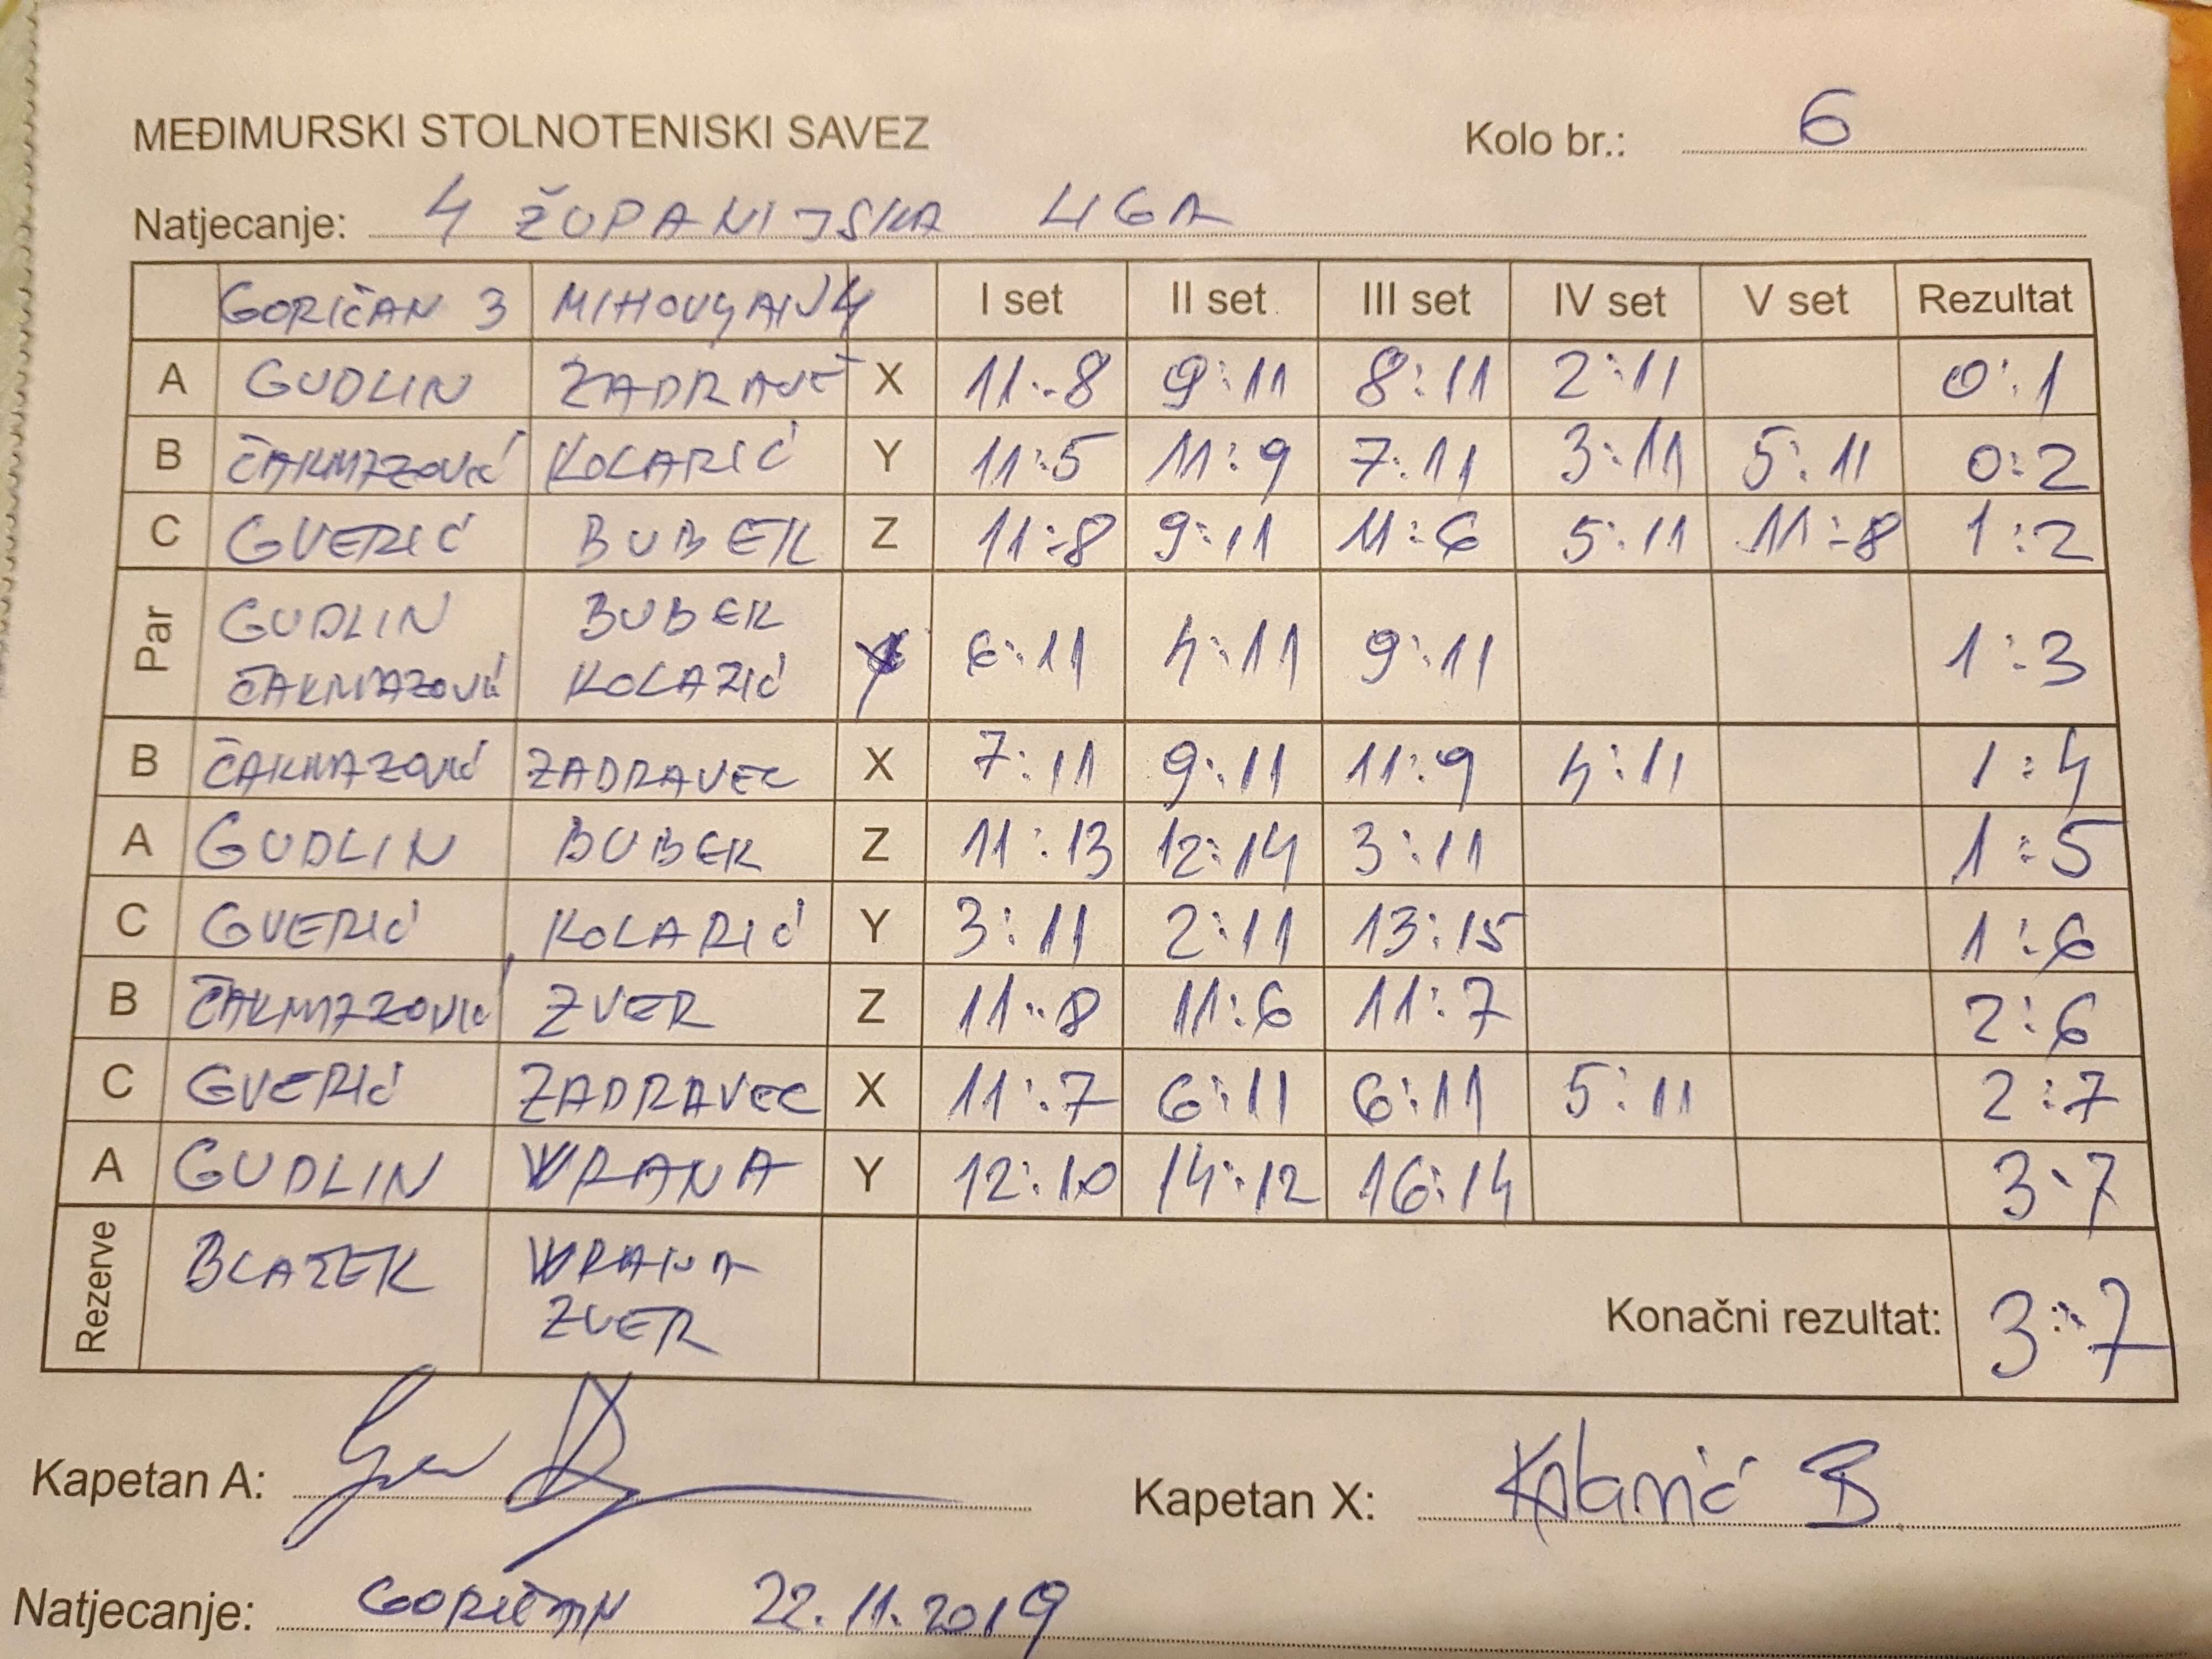 MEĐIMURSKI STOLNOTENISKI SAVEZ Kolo br.: 6
Natjecanje: 4 ŽUPANIJSKA LIGA
GORIČAN 3 MIHOVLJAN 4 I set II set III set IV set V set Rezultat
A GUDLIN ZADRAVEC X 11:8 9:11 8:11 2:11 0:1
B ČAKMAZOVIĆ KOLARIĆ Y 11:5 11:9 7:11 3:11 5:11 0:2
C GVERIĆ BUBEK Z 11:8 9:11 11:6 5:11 11:8 1:2
Par GUDLIN BUBEK 6:11 4:11 9:11 1:3
ČAKMAZOVIĆ KOLARIĆ
B ČAKMAZOVIĆ ZADRAVEC X 7:11 9:11 11:9 4:11 1:4
A GUDLIN BUBEK Z 11:13 12:14 3:11 1:5
C GVERIĆ KOLARIĆ Y 3:11 2:11 13:15 1:6
B ČAKMAZOVIĆ ZVER Z 11:8 11:6 11:7 2:6
C GVERIĆ ZADRAVEC X 11:7 6:11 6:11 5:11 2:7
A GUDLIN VRANA Y 12:10 14:12 16:14 3:7
Rezerve BLAŽEK VRANA
ZVER
Konačni rezultat: 3:7
Kapetan A: Kapetan X: Kolarić B
Natjecanje: GORIČAN 22.11.2019